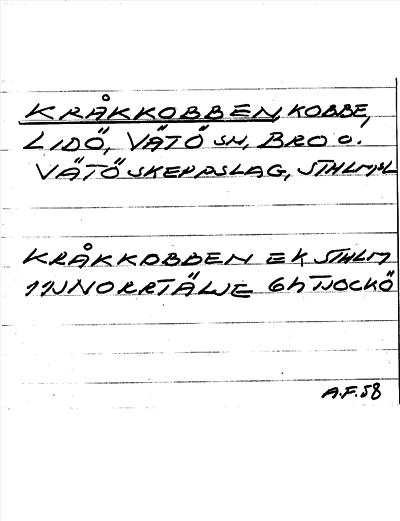 KRÅKKOBBEN, KOBBE,
LIDÖ, VÄTÖ SN, BRO O.
VÄTÖ SKEPPSLAG, STHLMS L
KRÅKKOBBEN EK STHLM
11J NORRTÄLJE 6h TJOCKÖ
A.F. 58